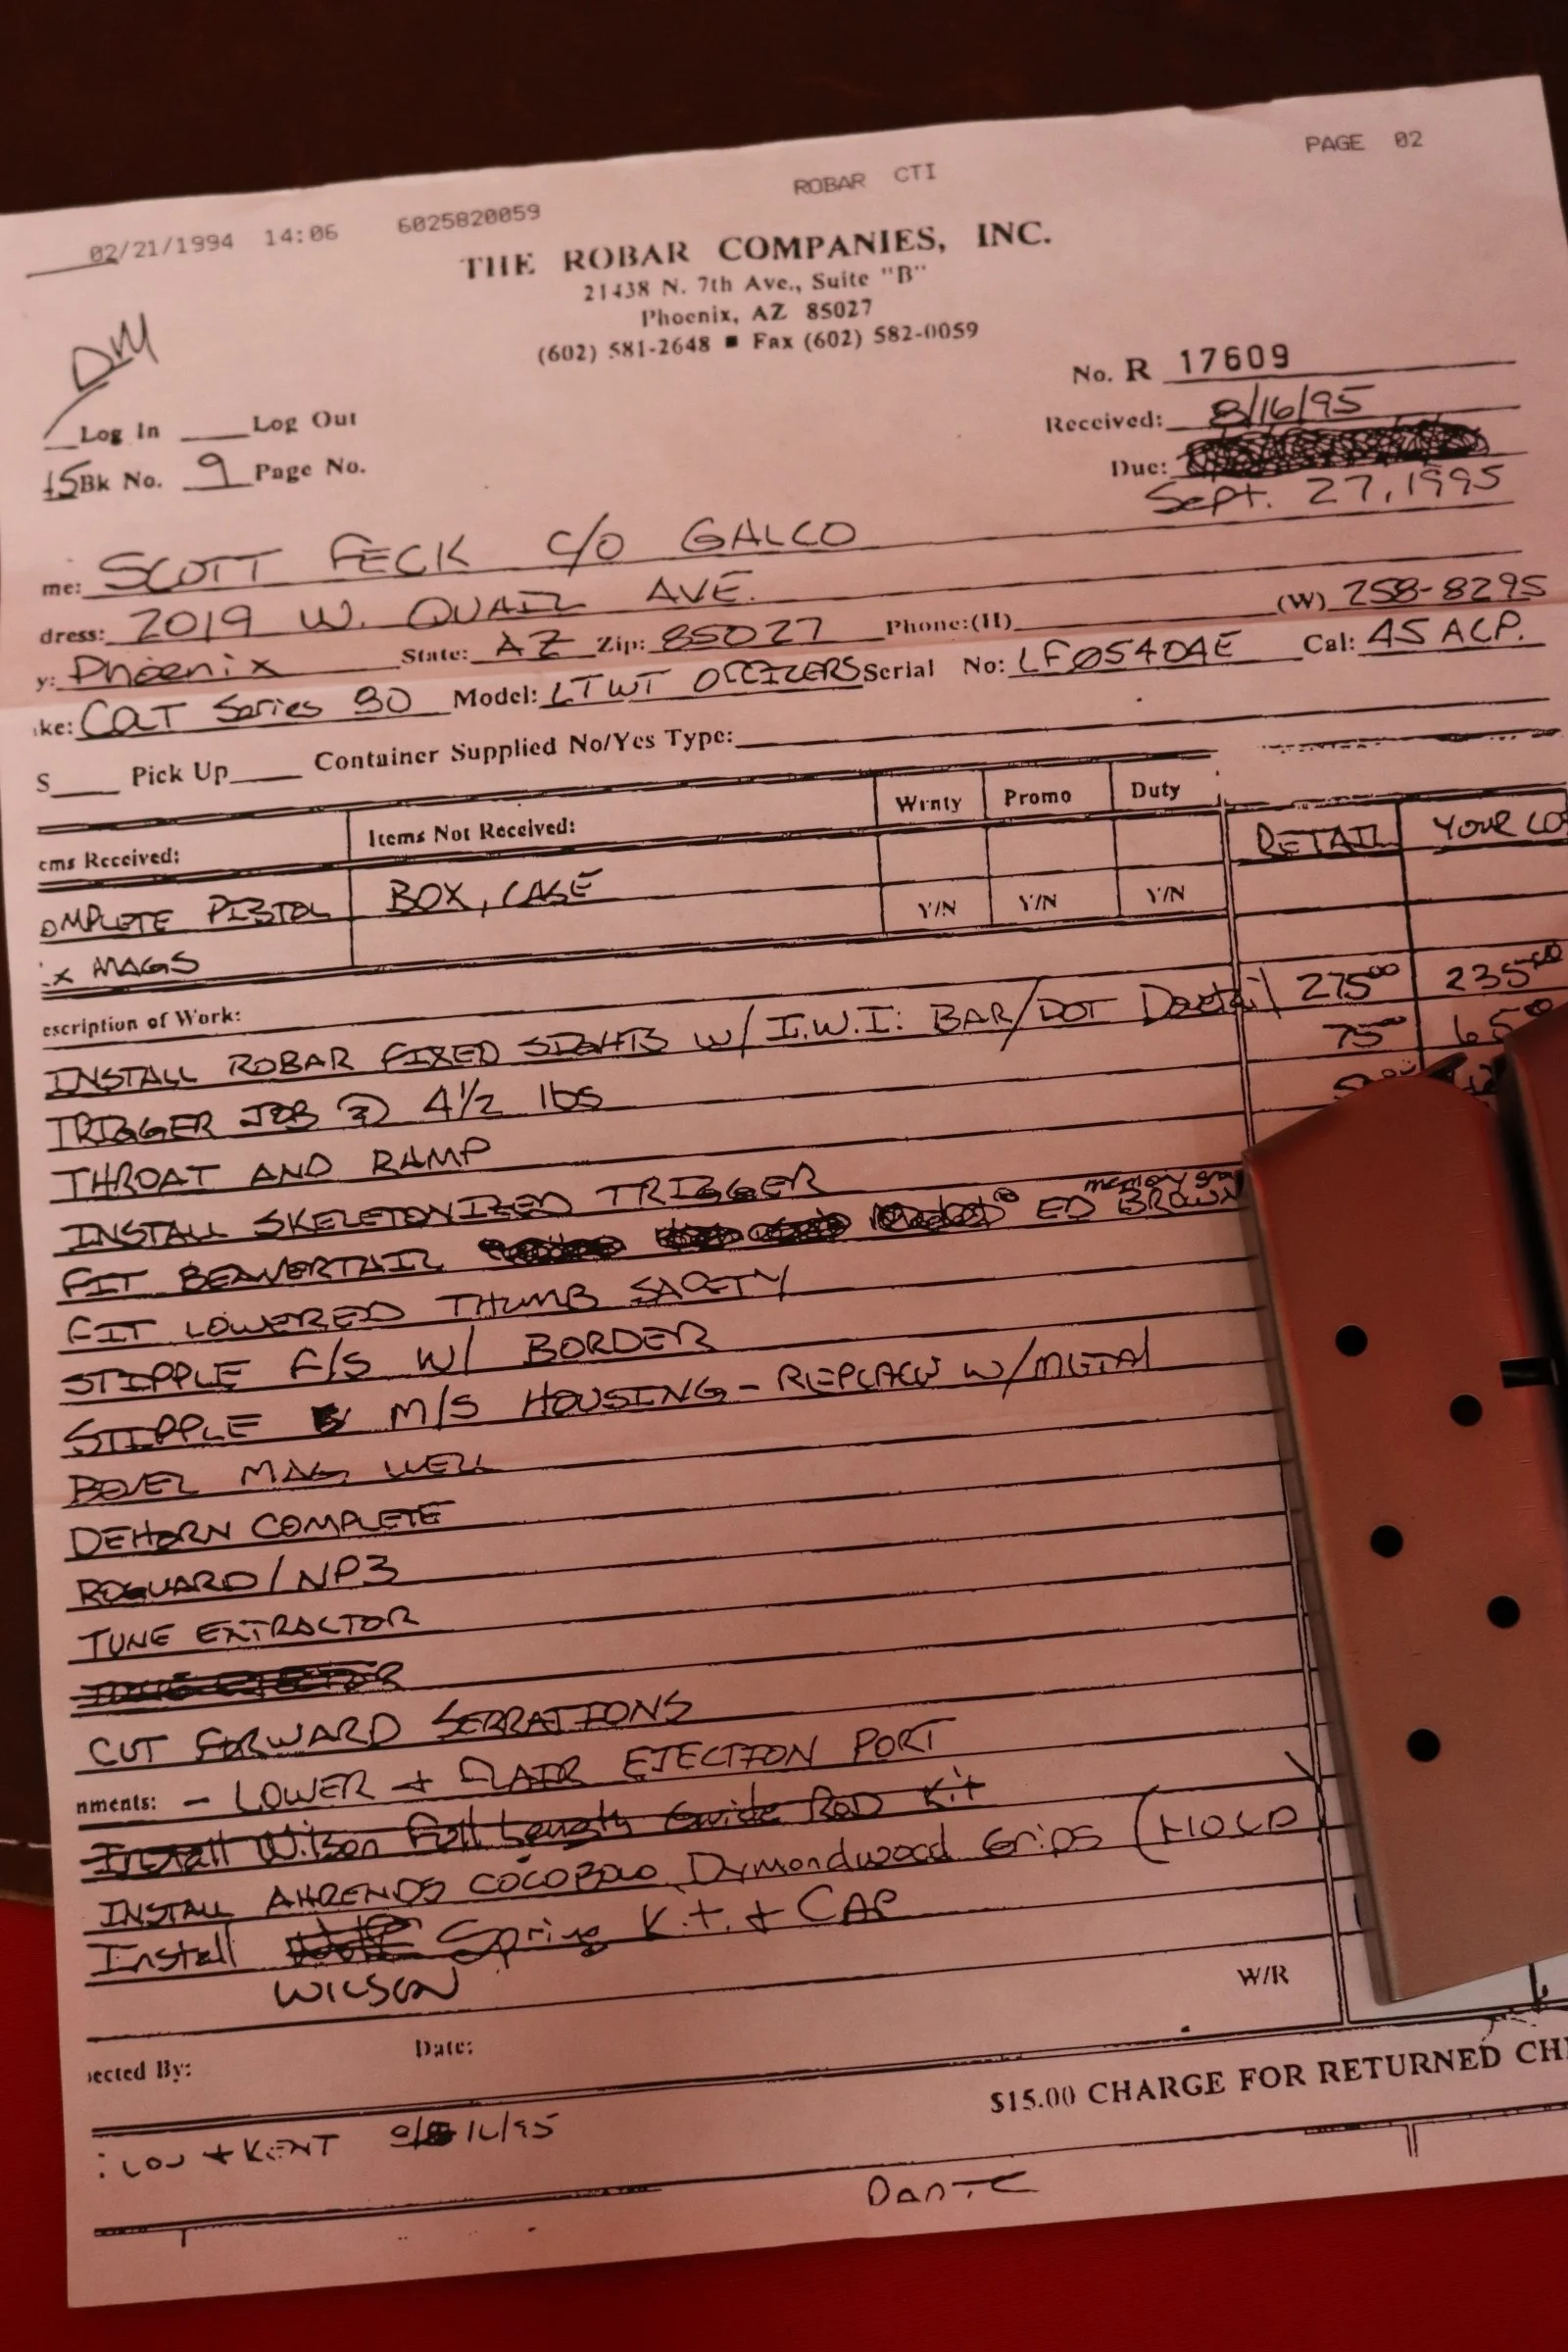 PAGE 02
02/21/1994 14:06 6025820059 ROBAR CTI
THE ROBAR COMPANIES, INC.
21438 N. 7th Ave., Suite "B"
Phoenix, AZ 85027
(602) 581-2648 ■ Fax (602) 582-0059
DM
No. R 17609
Log In Log Out
Received: 8/16/95
15 Bk No. 9 Page No.
Due:
Sept. 27, 1995
me: SCOTT FECK C/O GALCO
dress: 2019 W. QUAIL AVE.
y: Phoenix State: AZ Zip: 85027 Phone:(H) (W) 258-8295
ke: COLT Series 80 Model: LTWT OFFICERS Serial No: LF05404E Cal: 45 ACP.
S Pick Up Container Supplied No/Yes Type:
ems Received: Items Not Received: Wrnty Promo Duty RETAIL YOUR CO
OMPLETE PISTOL BOX, CASE Y/N Y/N Y/N
x MAGS
escription of Work:
INSTALL ROBAR FIXED SIGHTS W/ I.W.I. BAR/DOT Dovetail 275⁰⁰ 235⁰⁰
TRIGGER JOB @ 4 1/2 lbs 75⁰⁰ 65⁰⁰
THROAT AND RAMP
INSTALL SKELETONIZED TRIGGER
FIT BEAVERTAIL ED BROWN memory
FIT LOWERED THUMB SAFETY
STIPPLE F/S W/ BORDER
STIPPLE M/S HOUSING - REPLACE W/METAL
BEVEL MAG WELL
DEHORN COMPLETE
ROGUARD/NP3
TUNE EXTRACTOR
TUNE EJECTOR
CUT FORWARD SERRATIONS
nments: - LOWER + FLAIR EJECTION PORT
Install Wilson Full Length Guide ROD Kit
INSTALL AHRENDS COCOBOLO Dymondwood Grips (HOLD
Install Spring Kit + CAP
WILSON
W/R
ected By: Date:
$15.00 CHARGE FOR RETURNED CH
: LOU + KENT
DANTE